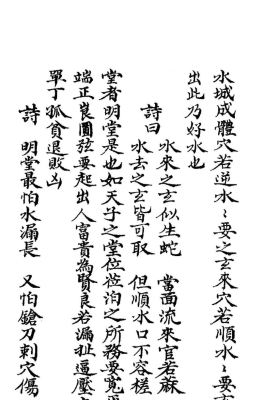 水城成體穴若逆水〻要之玄來穴若順水〻要玄
出此乃好水也
詩曰　水來之玄似生蛇　當面流來官若蔴
水去之玄皆可取　但順水口不容槎
堂者明堂是也如天子之堂位莅治之所務要寬
端正崀圓弦要起出人富貴為賢良若漏扯逼壓
單丁孤貧退敗凶
詩　明堂最怕水漏長　又怕鎗刀刺穴傷